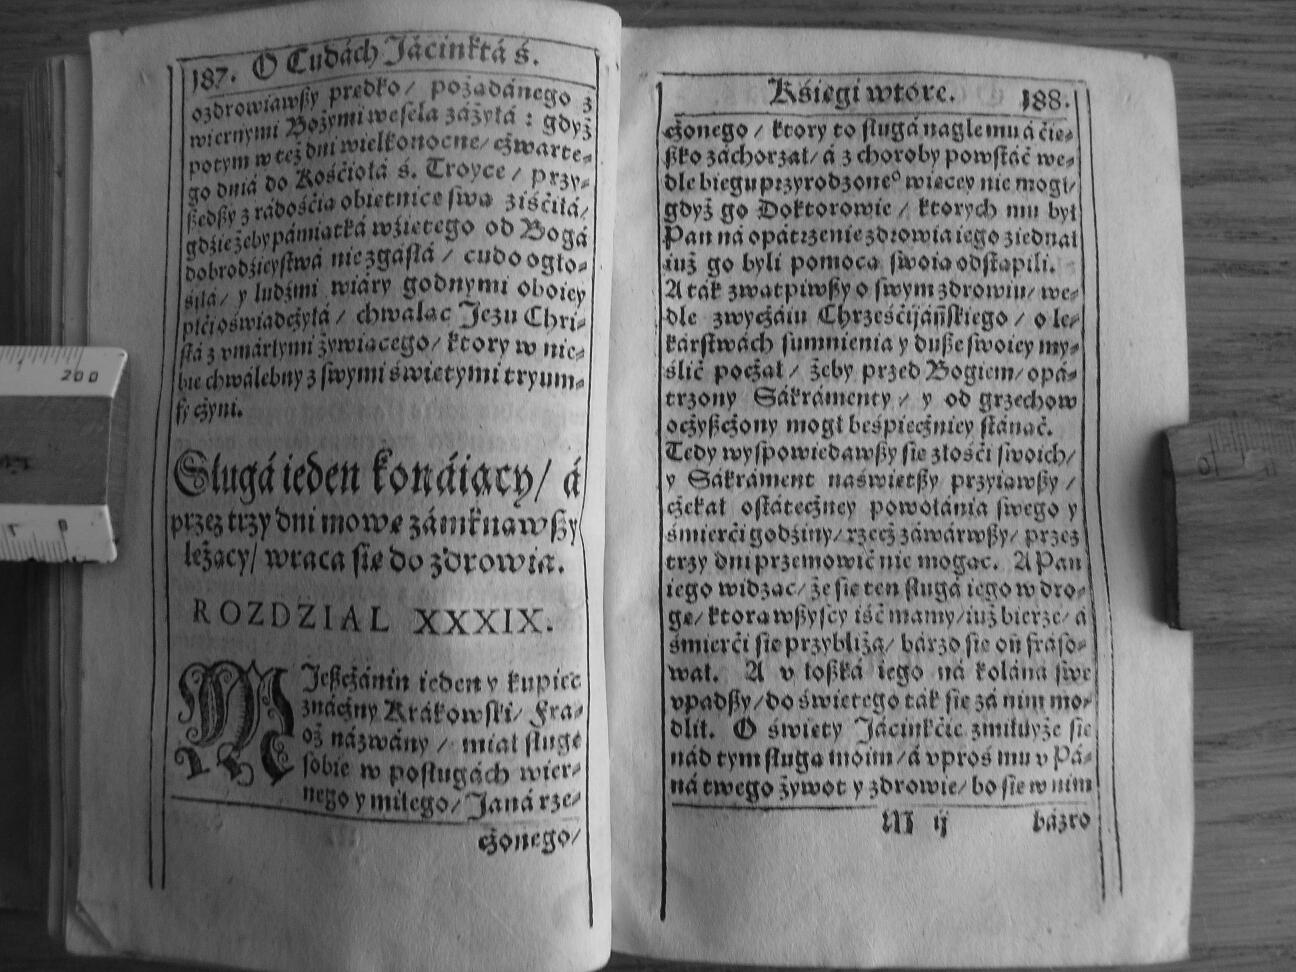 187. O Cudách Jácinktá ś.
ozdrowiawßy prędko / pożądánego z
wiernymi Bożymi wesela záżyłá : gdyż
potym w też dni wielkonocne / czwarte-
go dniá do Kośćiołá ś. Troyce / przy-
ßedßy z rádośćią obietnicę swą ziśćiłá /
gdzie żeby pámiątká wźiętego od Bogá
dobrodzieystwá nie zgásłá / cudo ogło-
śiłá / y ludźmi wiáry godnymi oboiey
płći oświadczyłá / chwaląc Jezu Chri-
stá z vmárłymi żywiącego / ktory w nie-
bie chwálebny z swymi świętymi tryum-
fy czyni.
Sługá ieden konáiący / á
przez trzy dni mowę zámknąwßy
leżący / wraca się do zdrowia.
ROZDZIAL XXXIX.
MJeßczánin ieden y kupiec
znáczny Krákowski / Fra-
oż názwány / miał sługę
sobie w posługách wier-
nego y miłego / Janá rze-
czonego /
Księgi wtore. 188.
czonego / ktory to sługá nagle mu á ćię-
ßko záchorzał / á z choroby powstáć we-
dle biegu przyrodzone° więcey nie mogł /
gdyż go Doktorowie / ktorych mu był
Pan ná opátrzenie zdrowia iego ziednał
iuż go byli pomocą swoią odstąpili.
A ták zwątpiwßy o swym zdrowiu / we-
dle zwyczáiu Chrześćijáńskiego / o le-
kárstwách sumnienia y duße swoiey my-
ślić począł / żeby przed Bogiem / opá-
trzony Sákrámenty / y od grzechow
oczyßczony mogł beśpieczniey stánąć.
Tedy wyspowiedawßy się złośći swoich /
y Sákráment naświętßy przyiąwßy /
czekał ostáteczney powołánia swego y
śmierći godźiny / rzecz záwárwßy / przez
trzy dni przemowić nic mogąc. A Pan
iego widząc / że się ten sługá iego w dro-
gę / ktorą wßyscy iść mamy / iuż bierze / á
śmierći się przybliżą / bárzo się oń fráso-
wał. A v łoßká iego ná kolána swe
vpadßy / do świętego ták się zá nim mo-
dlił. O święty Jácinkćie zmiłuyże się
nád tym sługą moim / á vproś mu v Pá-
ná twego żywot y zdrowie / bo się w nim
M ij bázro